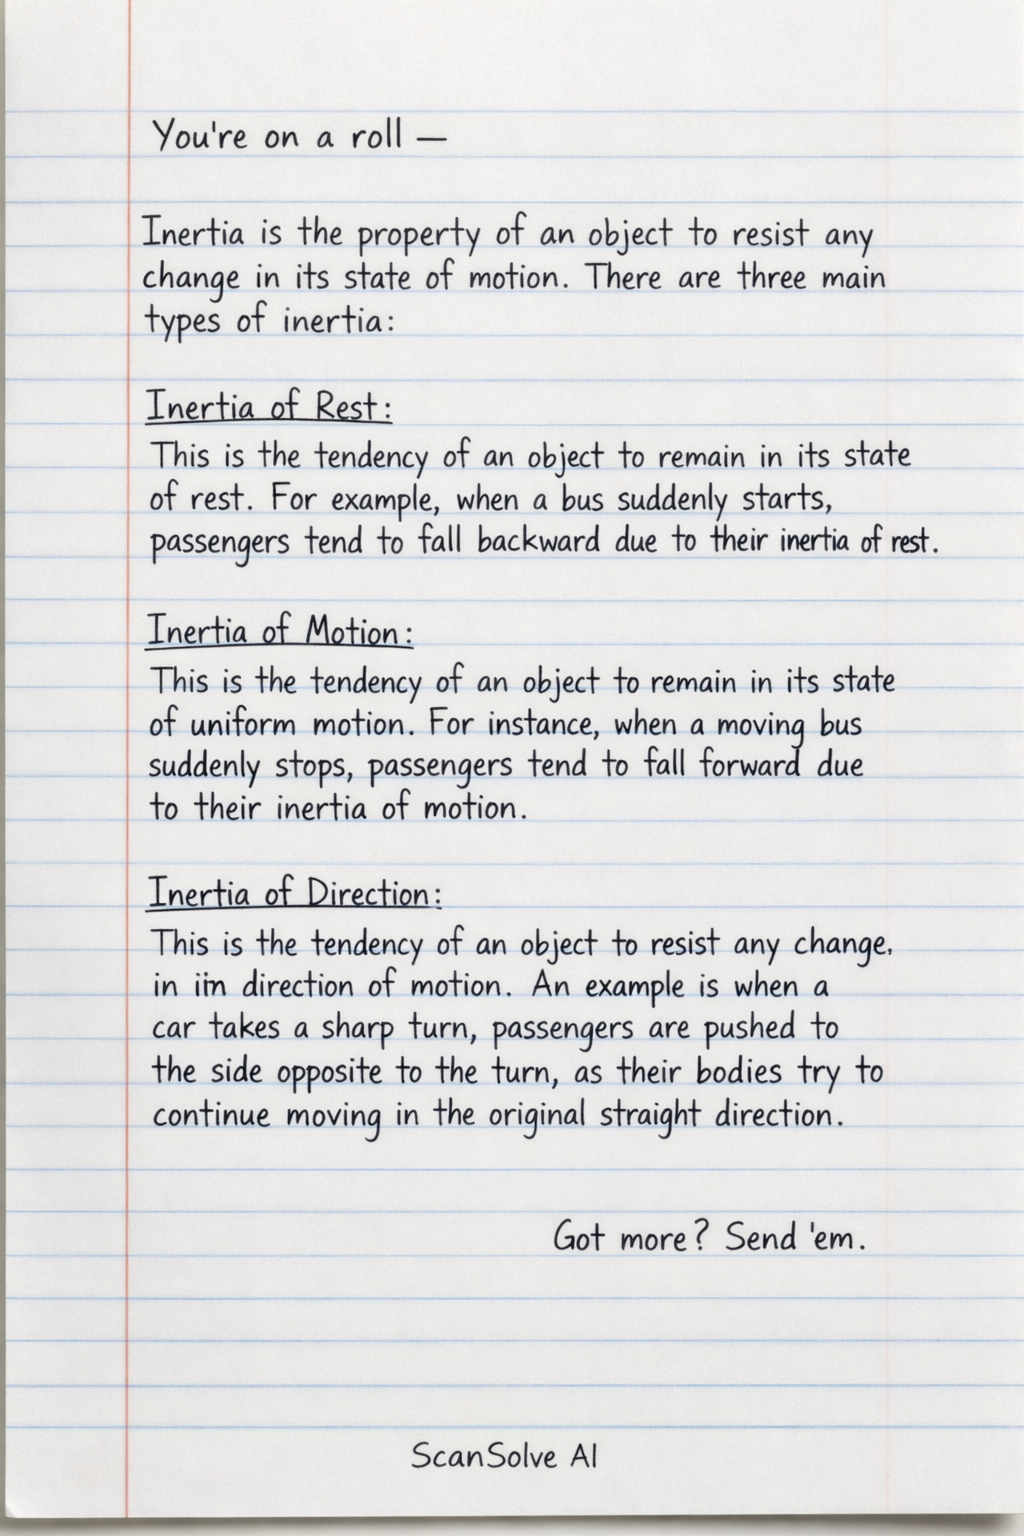 You're on a roll —
Inertia is the property of an object to resist any
change in its state of motion. There are three main
types of inertia:
Inertia of Rest:
This is the tendency of an object to remain in its state
of rest. For example, when a bus suddenly starts,
passengers tend to fall backward due to their inertia of rest.
Inertia of Motion:
This is the tendency of an object to remain in its state
of uniform motion. For instance, when a moving bus
suddenly stops, passengers tend to fall forward due
to their inertia of motion.
Inertia of Direction:
This is the tendency of an object to resist any change.
in iin direction of motion. An example is when a
car takes a sharp turn, passengers are pushed to
the side opposite to the turn, as their bodies try to
continue moving in the original straight direction.
Got more? Send 'em.
ScanSolve AI